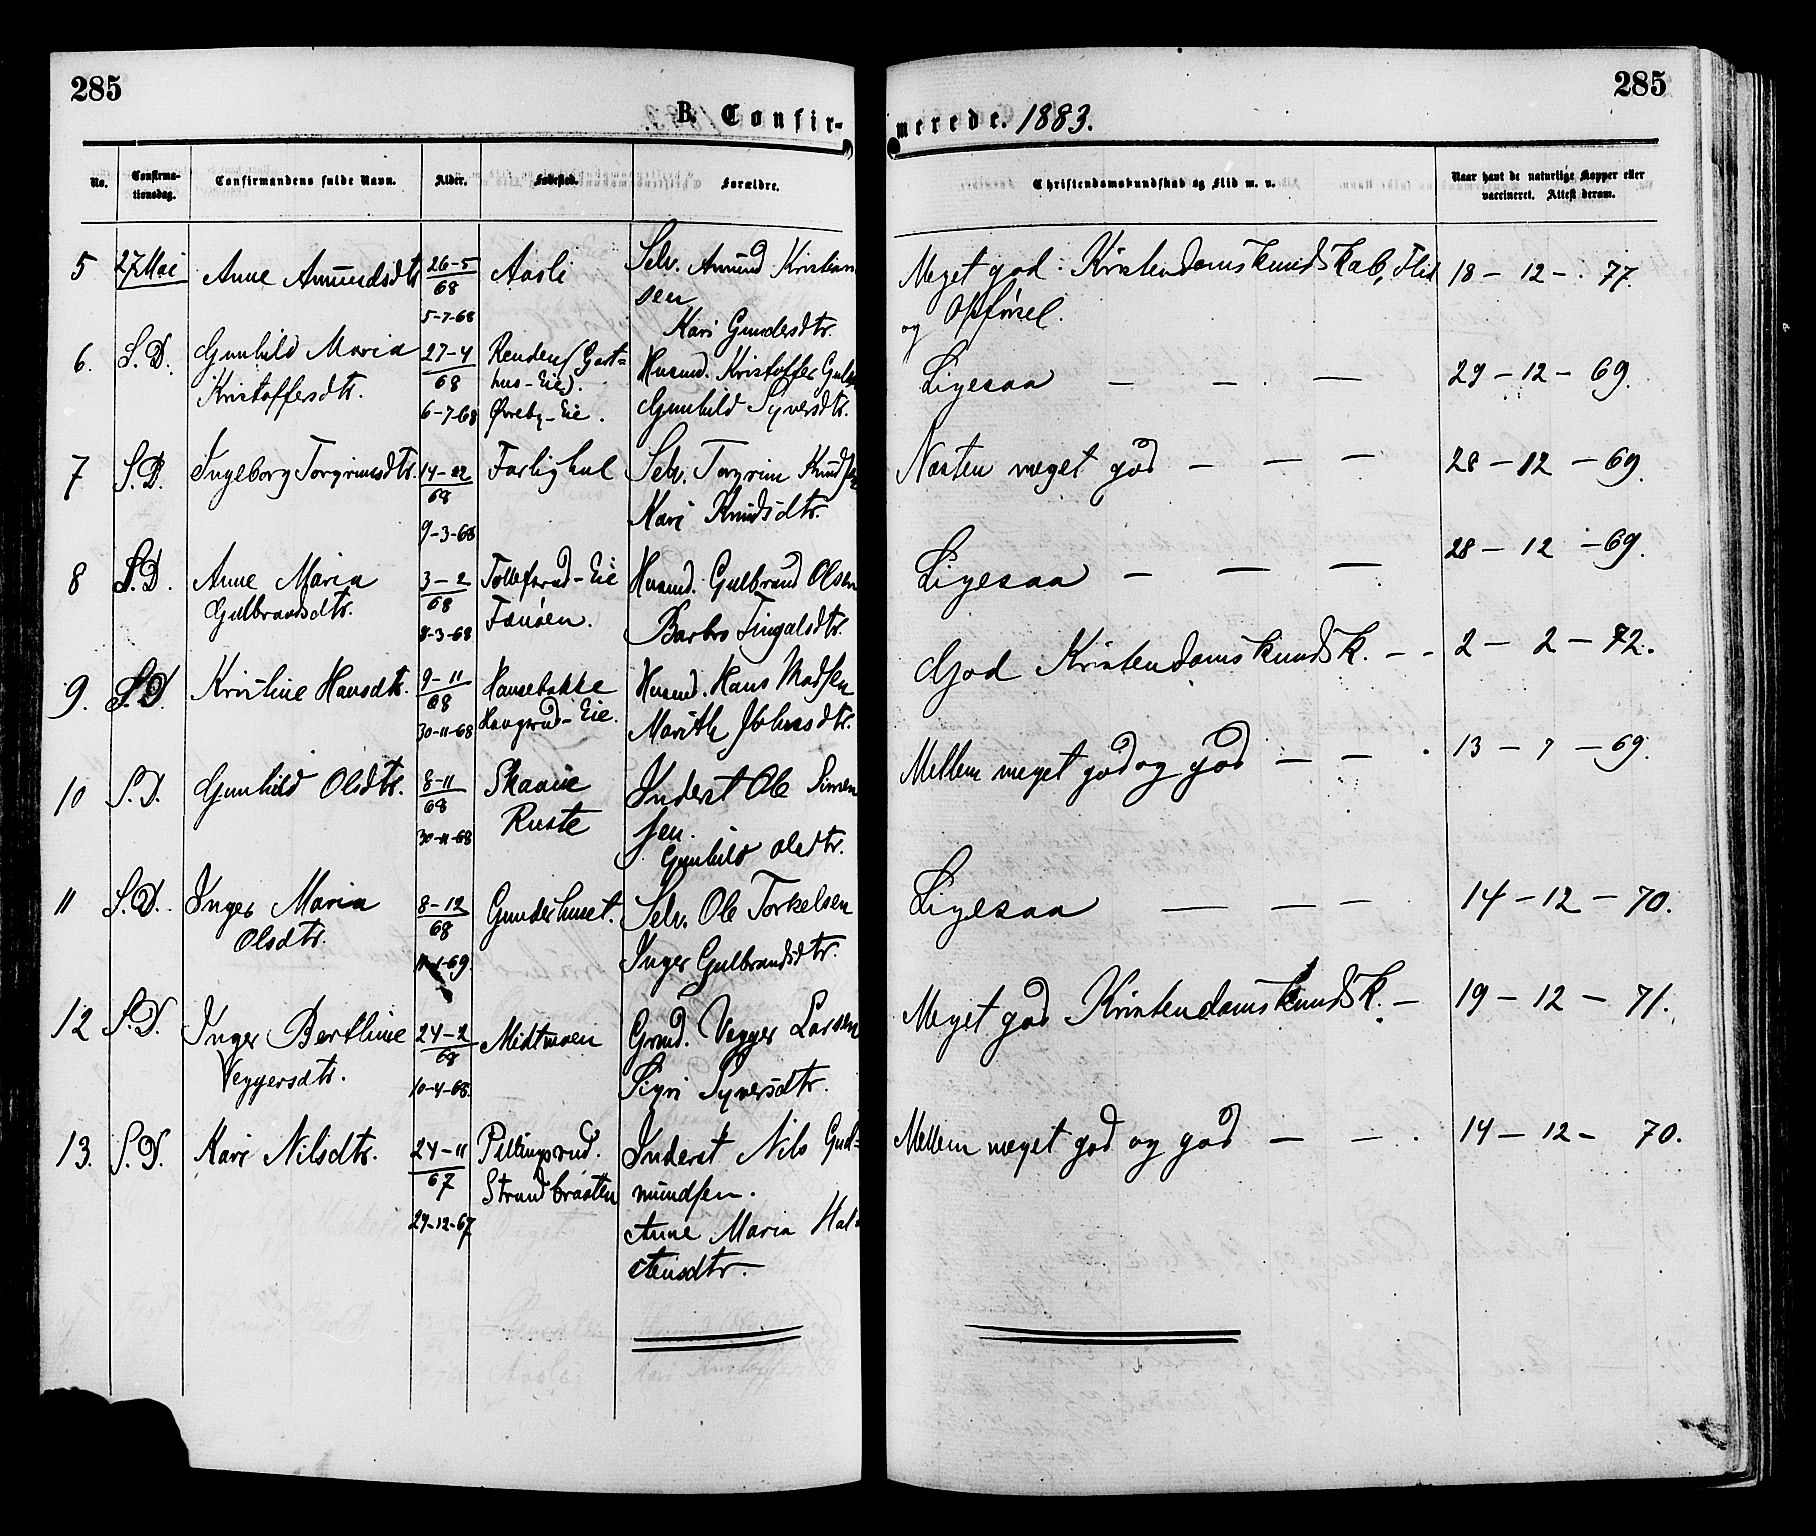 285
285
B. Confir-
merede. 1883.
No.
Confirma-
tionsdag.
Confirmandens fulde Navn.
Alder.
Fødested.
Forældre.
Christendomskundskab og Flid m. v.
Naar havt de naturlige Kopper eller
vaccineret. Attest derom.
5 27 Mai Anne Amundsdtr 26-5 Aasli Selv. Amund Kristian
68 sen
5-7-68 Kari Gundersdtr.
Meget god: Kristendomskundskab, Flid 18 - 12 - 77.
og Opførsel.
6. S.D. Gunhild Maria 27-4 Husmd. Kristoffer
Kristoffersdtr. 68 hus-Eie).
6-7-68 Øvreby-Eie. Gunhild Syversdtr.
Ligesaa — — — 29 - 12 - 69.
7 S.D. Ingeborg Torgrimsdtr. Selv. Torgrim Knudsen
68 Kari Knudsdtr.
9-3-68
Næsten meget god — — — 28 - 12 - 69.
8 S.D. Anne Maria 3-2 Tollefsrud-Eie Husmd. Gulbrand Olsen
Gulbrandsdtr. 68
8-3-68 Barbro Tingalsdtr.
Ligesaa — — — 28 - 12 - 69.
9. S.D. Kristine Hansdtr. 9-11 Hansebakke Husmd. Hans Madsen
68 Haugsrud-Eie.
30-11-68 Marith Johnsdtr.
God Kristendomskundsk. - - 2 - 2 - 72.
10 S.D. Gunhild Olsdtr. 8-11 Inderst Ole Simen
68 Ruste sen.
30-11-68 Gunhild Olsdtr.
Mellem meget god og god — — 13 - 7 - 69.
11 S.D. Inger Maria 8-12 Gunderhuset. Selv. Ole Torkelsen
Olsdtr. 68
-1-69. Inger Gulbrandsdtr.
Ligesaa — — — 14 - 12 - 70.
12 S.D. Inger Bertline 24-2 Midtmoen Grmd. Vegger Larsen
Veggersdtr. 68
10-4-68. Sigri Syversdtr.
Meget god Kristendomskundsk. — 19 - 12 - 71.
13. S.D. Kari Nilsdtr. 24-11 Pellingsrud. Inderst Nils Gud-
67 Strandbraaten mundsen.
29-12-67 Anne Maria Hal-
stensdtr.
Mellem meget god og god — — 14 - 12 - 70.